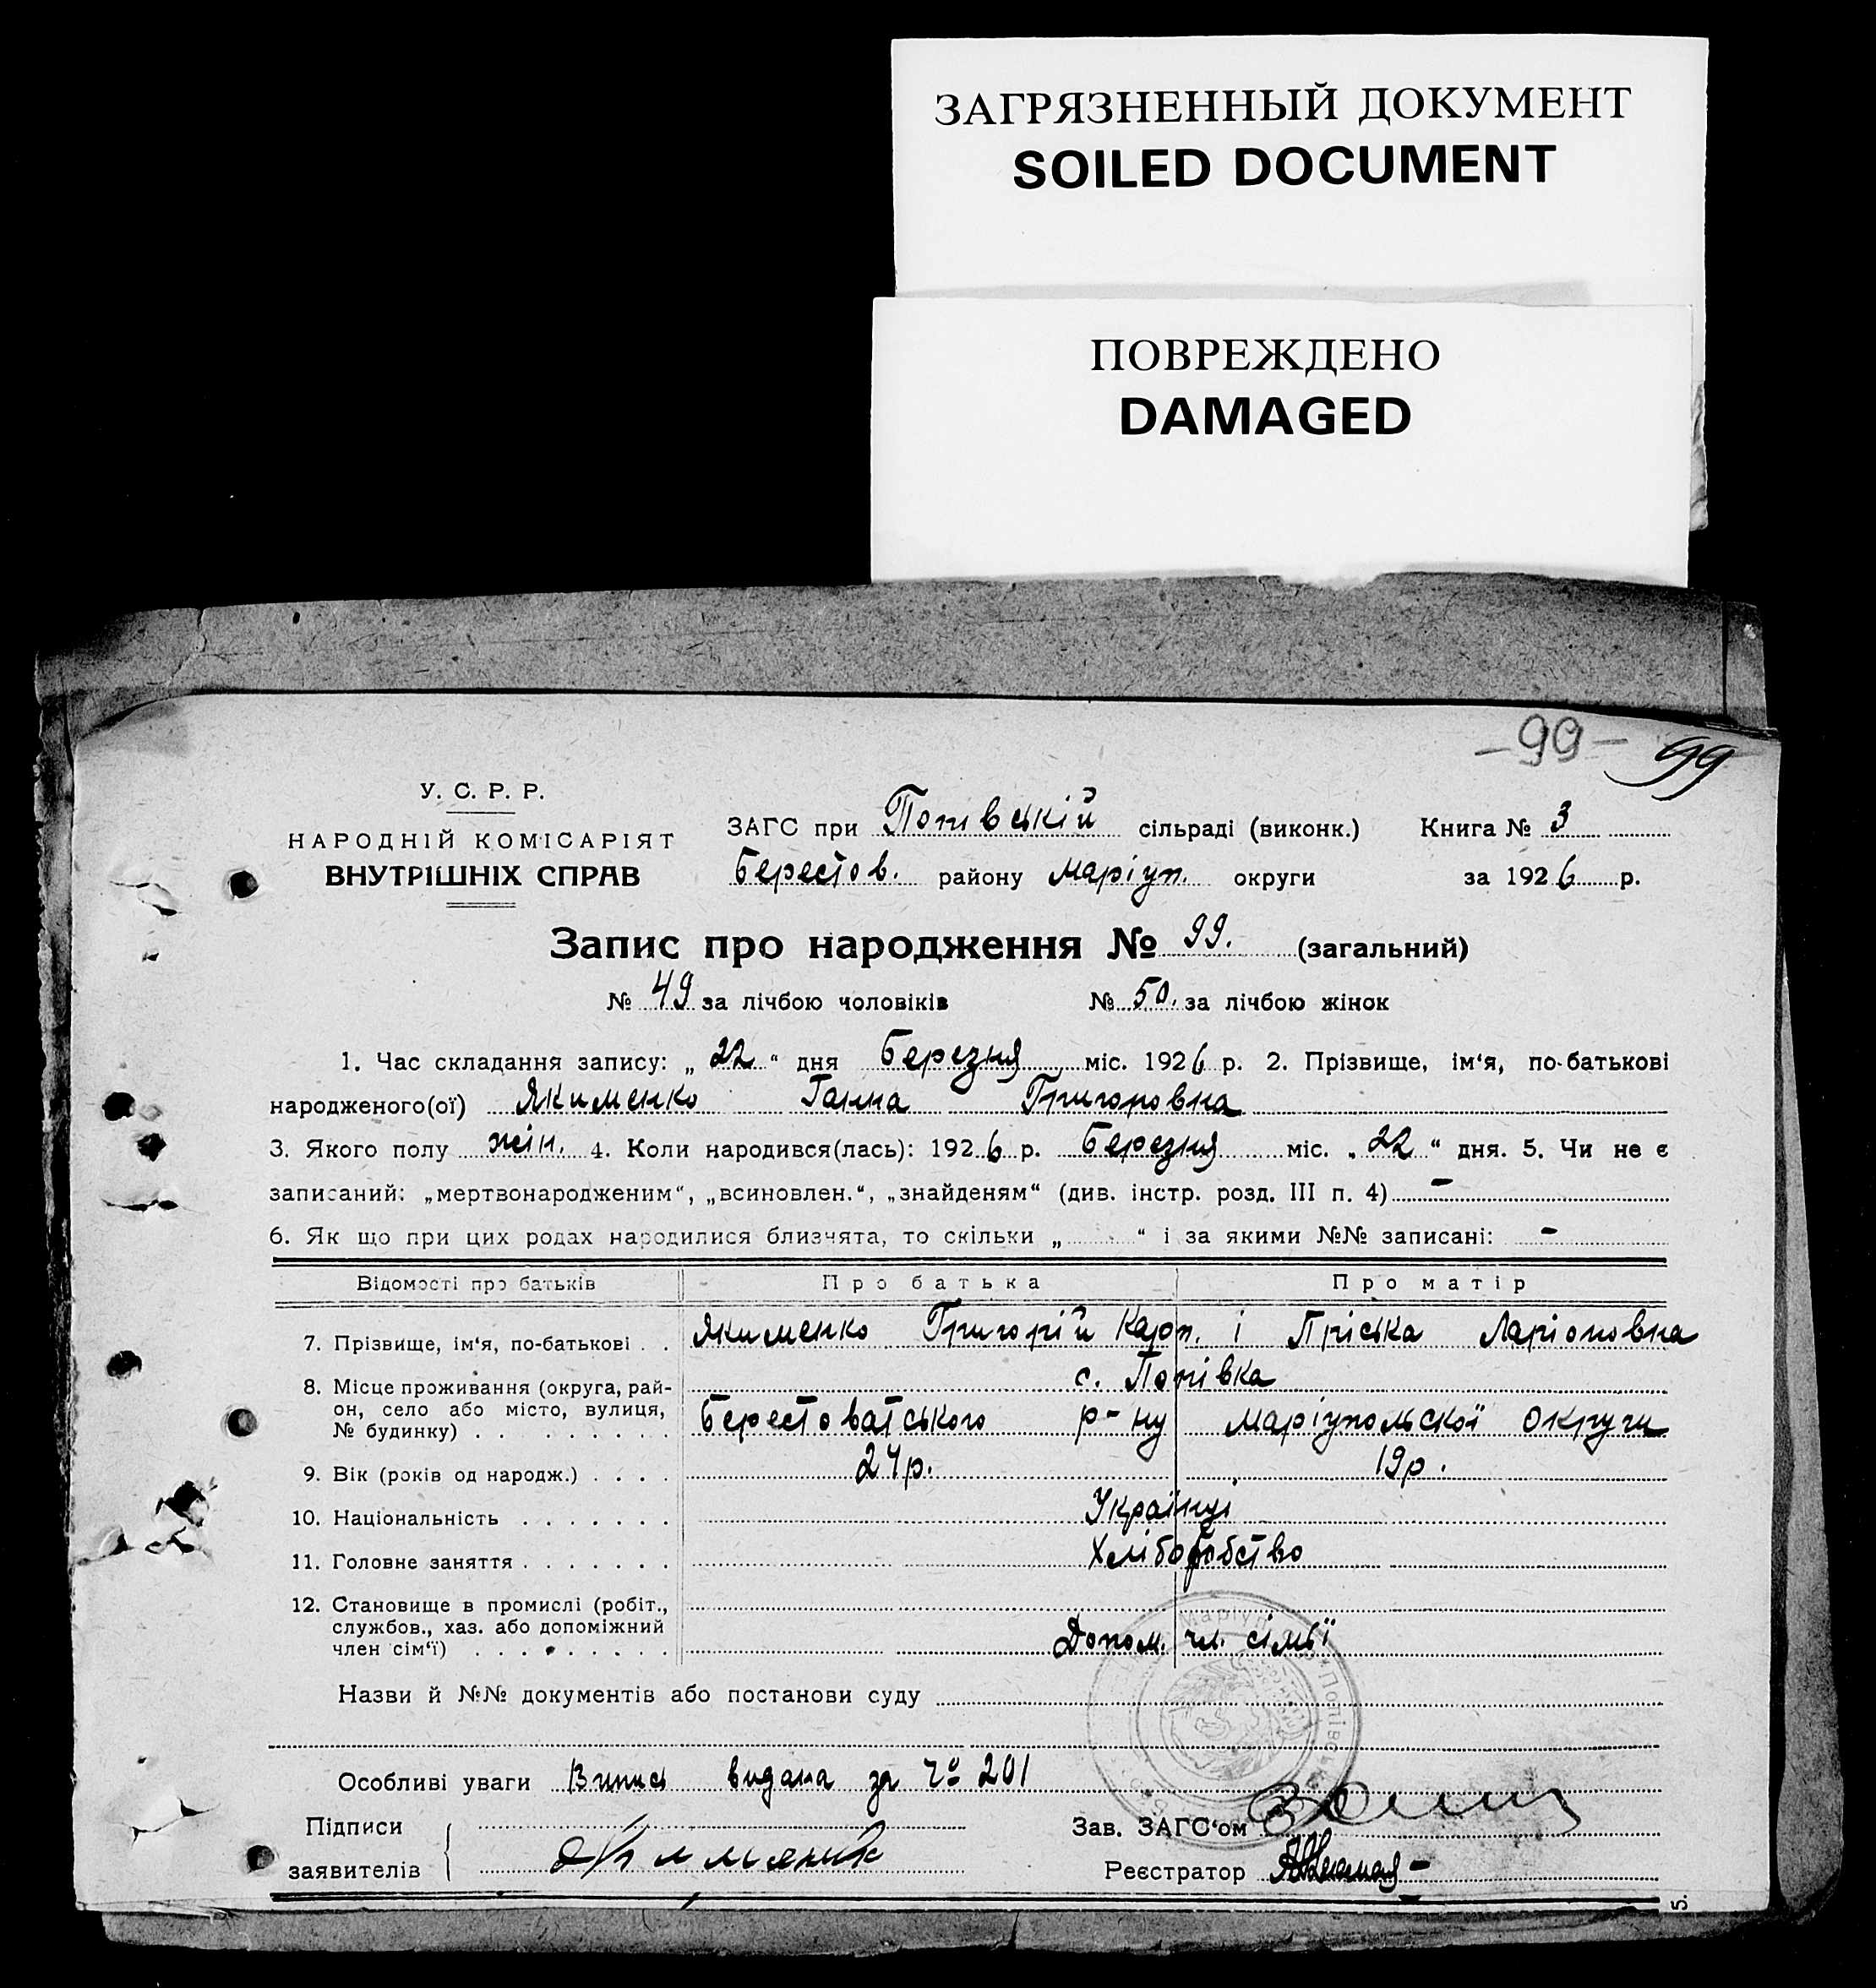 ЗАГРЯЗНЕННЫЙ ДОКУМЕНТ
SOILED DOCUMENT
ПОВРЕЖДЕНО
DAMAGED
-99- 99
У. С. Р. Р.
НАРОДНІЙ КОМІСАРІЯТ
ВНУТРІШНІХ СПРАВ
ЗАГС при Попівській сільраді (виконк.) Книга № 3
Берестов. району Маріуп. округи за 1926 р.
Запис про народження № 99. (загальний)
№ 49 за лічбою чоловіків № 50. за лічбою жінок
1. Час складання запису: „22“ дня Березня міс. 1926 р. 2. Прізвище, ім'я, по-батькові
народженого(ої) Якименко Ганна Григоровна
3. Якого полу жін. 4. Коли народився(лась): 1926 р. Березня міс. „22“ дня. 5. Чи не є
записаний: „мертвонародженим“, „всиновлен.“, „знайденям“ (див. інстр. розд. III п. 4) -
6. Як що при цих родах народилися близнята, то скільки „ “ і за якими №№ записані: -
Відомості про батьків Про батька Про матір
7. Прізвище, ім'я, по-батькові . . Якименко Григорій Карп. і Пріська Ларіоновна
8. Місце проживання (округа, рай- с. Попівка
он, село або місто, вулиця, Берестоватського р-ну Маріупольскої округи
№ будинку) . . . . . . . . .
9. Вік (років од народж.) . . . . 24р. 19р.
10. Національність . . . . . . . Українці
11. Головне заняття . . . . . . . Хліборобство
12. Становище в промислі (робіт.,
службов., хаз. або допоміжний
член сім'ї) . . . . . . . . . Допом. чл. сімьї
Назви й №№ документів або постанови суду
Особливі уваги Випись видана за № 201
Підписи
Зав. ЗАГС'ом
заявителів
Реєстратор
5.